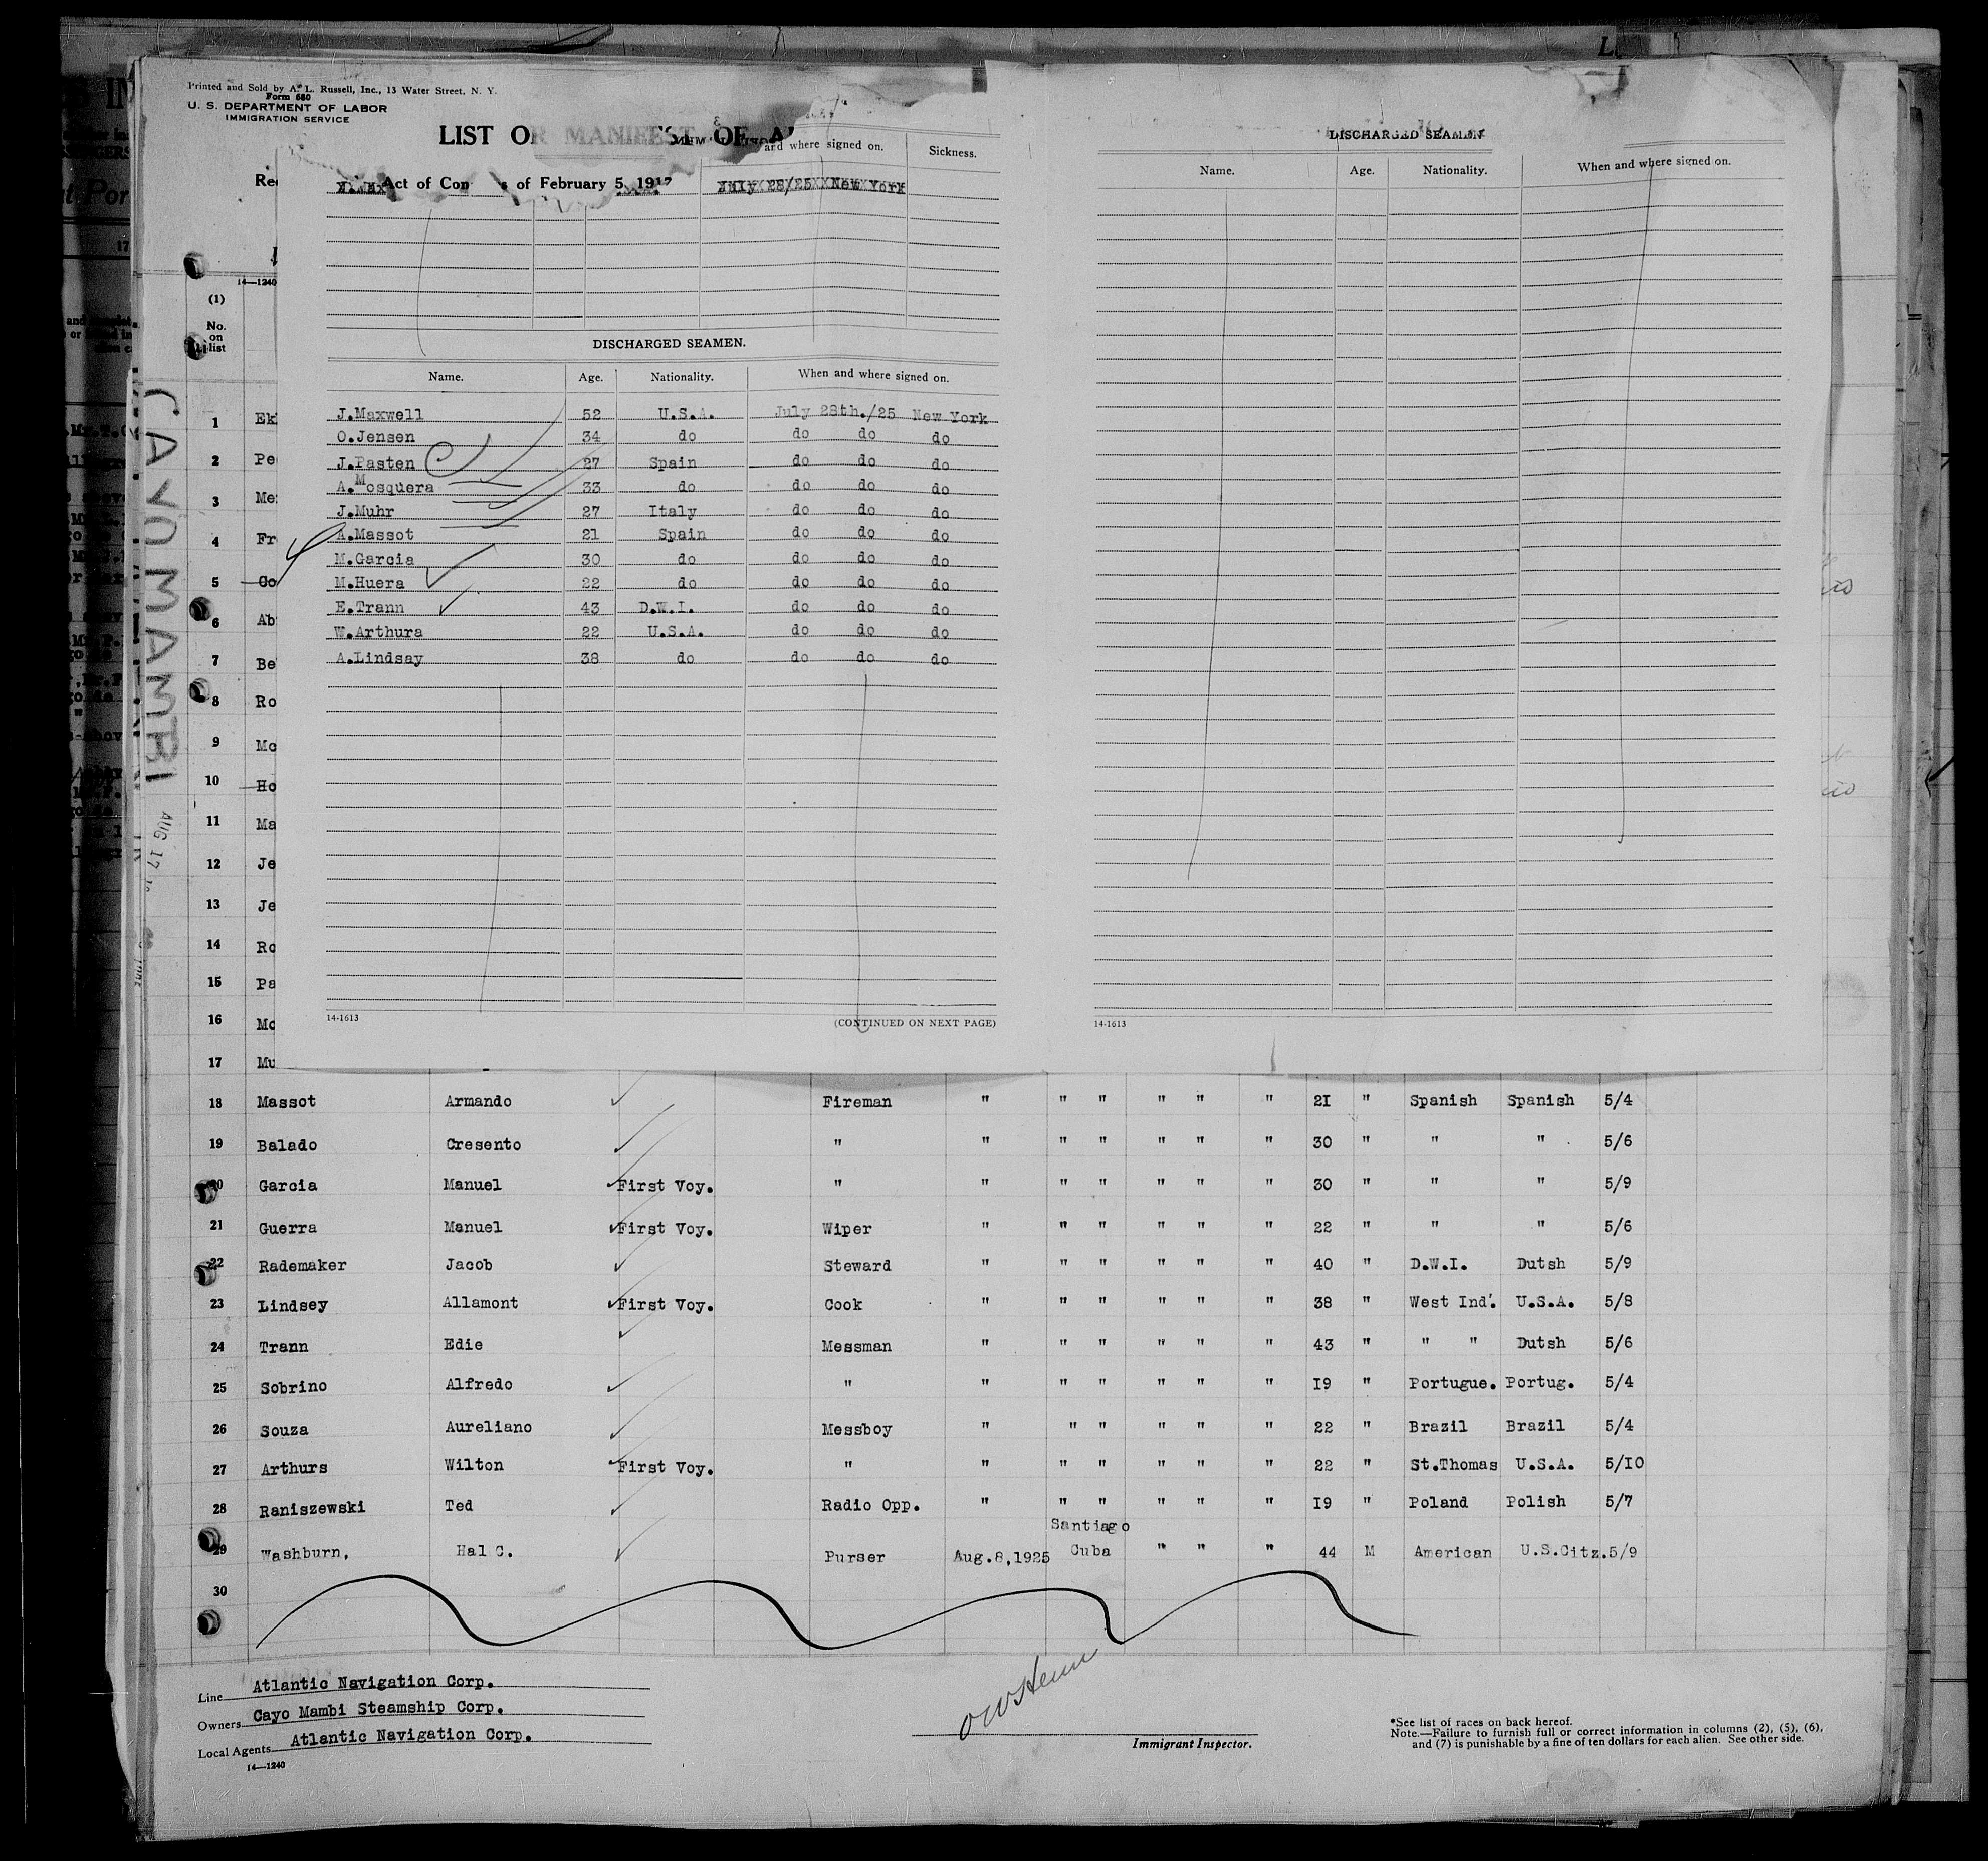 Printed and Sold by A. L. Russell, Inc., 13 Water Street, N. Y.
Form 680
U. S. DEPARTMENT OF LABOR
IMMIGRATION SERVICE
LIST OR MANIFEST OF A
and where signed on. Sickness.
Act of Con s of February 5, 1917 July 28/25 New York
DISCHARGED SEAMEN.
Name. Age. Nationality. When and where signed on.
J.Maxwell 52 U.S.A. July 28th./25 New York
O.Jensen 34 do do do do
J.Pasten 27 Spain do do do
A.Mosquera 33 do do do do
J.Muhr 27 Italy do do do
A.Massot 21 Spain do do do
M.Garcia 30 do do do do
M.Huera 22 do do do do
E.Trann 43 D.W.I. do do do
W.Arthura 22 U.S.A. do do do
A.Lindsay 38 do do do do
14-1613 (CONTINUED ON NEXT PAGE)
DISCHARGED SEAMEN
Name. Age. Nationality. When and where signed on.
14-1613
CAYO MAMBI
AUG 17
14—1240
(1)
No. on list
1 Ek
2 Pe
3 Me
4 Fr
5 Go
6 Ab
7 Be
8 Ro
9 Mc
10 Ho
11 Ma
12 Je
13 Je
14 Ro
15 Pa
16 Mc
17 Mu
18 Massot Armando Fireman " " " " " " 21 " Spanish Spanish 5/4
19 Balado Cresento " " " " " " " 30 " " " 5/6
20 Garcia Manuel First Voy. " " " " " " " 30 " " " 5/9
21 Guerra Manuel First Voy. Wiper " " " " " " 22 " " " 5/6
22 Rademaker Jacob Steward " " " " " " 40 " D.W.I. Dutsh 5/9
23 Lindsey Allamont First Voy. Cook " " " " " " 38 " West Ind'. U.S.A. 5/8
24 Trann Edie Messman " " " " " " 43 " " " Dutsh 5/6
25 Sobrino Alfredo " " " " " " " 19 " Portugue. Portug. 5/4
26 Souza Aureliano Messboy " " " " " " 22 " Brazil Brazil 5/4
27 Arthurs Wilton First Voy. " " " " " " " 22 " St.Thomas U.S.A. 5/10
28 Raniszewski Ted Radio Opp. " " " " " " 19 " Poland Polish 5/7
29 Washburn, Hal C. Purser Aug.8,1925 Santiago Cuba " " " 44 M American U.S.Citz. 5/9
30
Line Atlantic Navigation Corp.
Owners Cayo Mambi Steamship Corp.
Local Agents Atlantic Navigation Corp.
14—1240
Immigrant Inspector.
*See list of races on back hereof.
Note.—Failure to furnish full or correct information in columns (2), (5), (6),
and (7) is punishable by a fine of ten dollars for each alien. See other side.